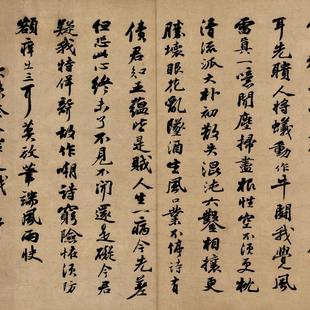 耳先聵人將蟻動作牛鬭我覺風
雷真一噫聞塵掃盡根性空不須更枕
清流派大朴初散失混沌六鑿相攘更
勝壞眼花亂墜酒生風口業不停詩有
債君知五蘊皆是賊人生一病今先差
但恐此心終未了不見不聞還是礙今君
疑我特佯聾故作嘲詩窮險怪須防
額癢出三耳莫放筆端風雨快